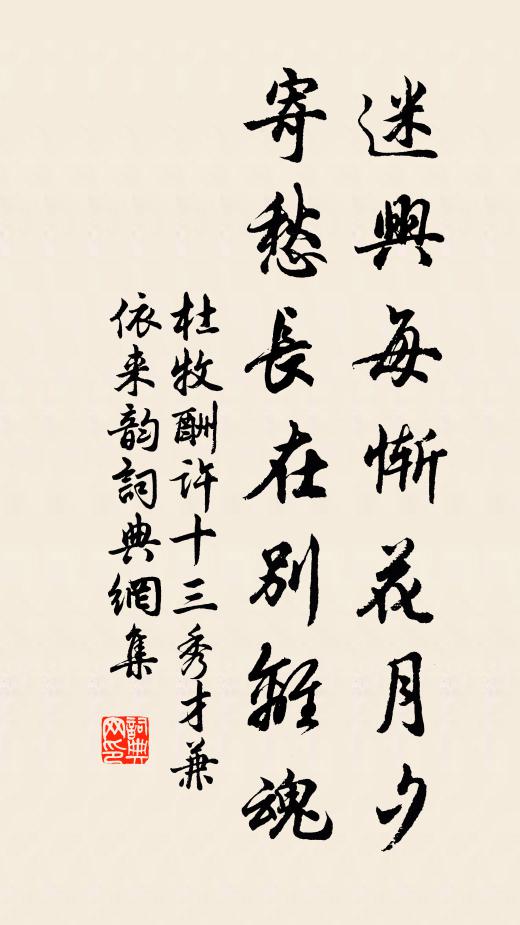 迷興每慚花月夕
寄愁長在別離魂
杜牧酬许十三秀才兼
依来韵詞典網集
詞典
网印